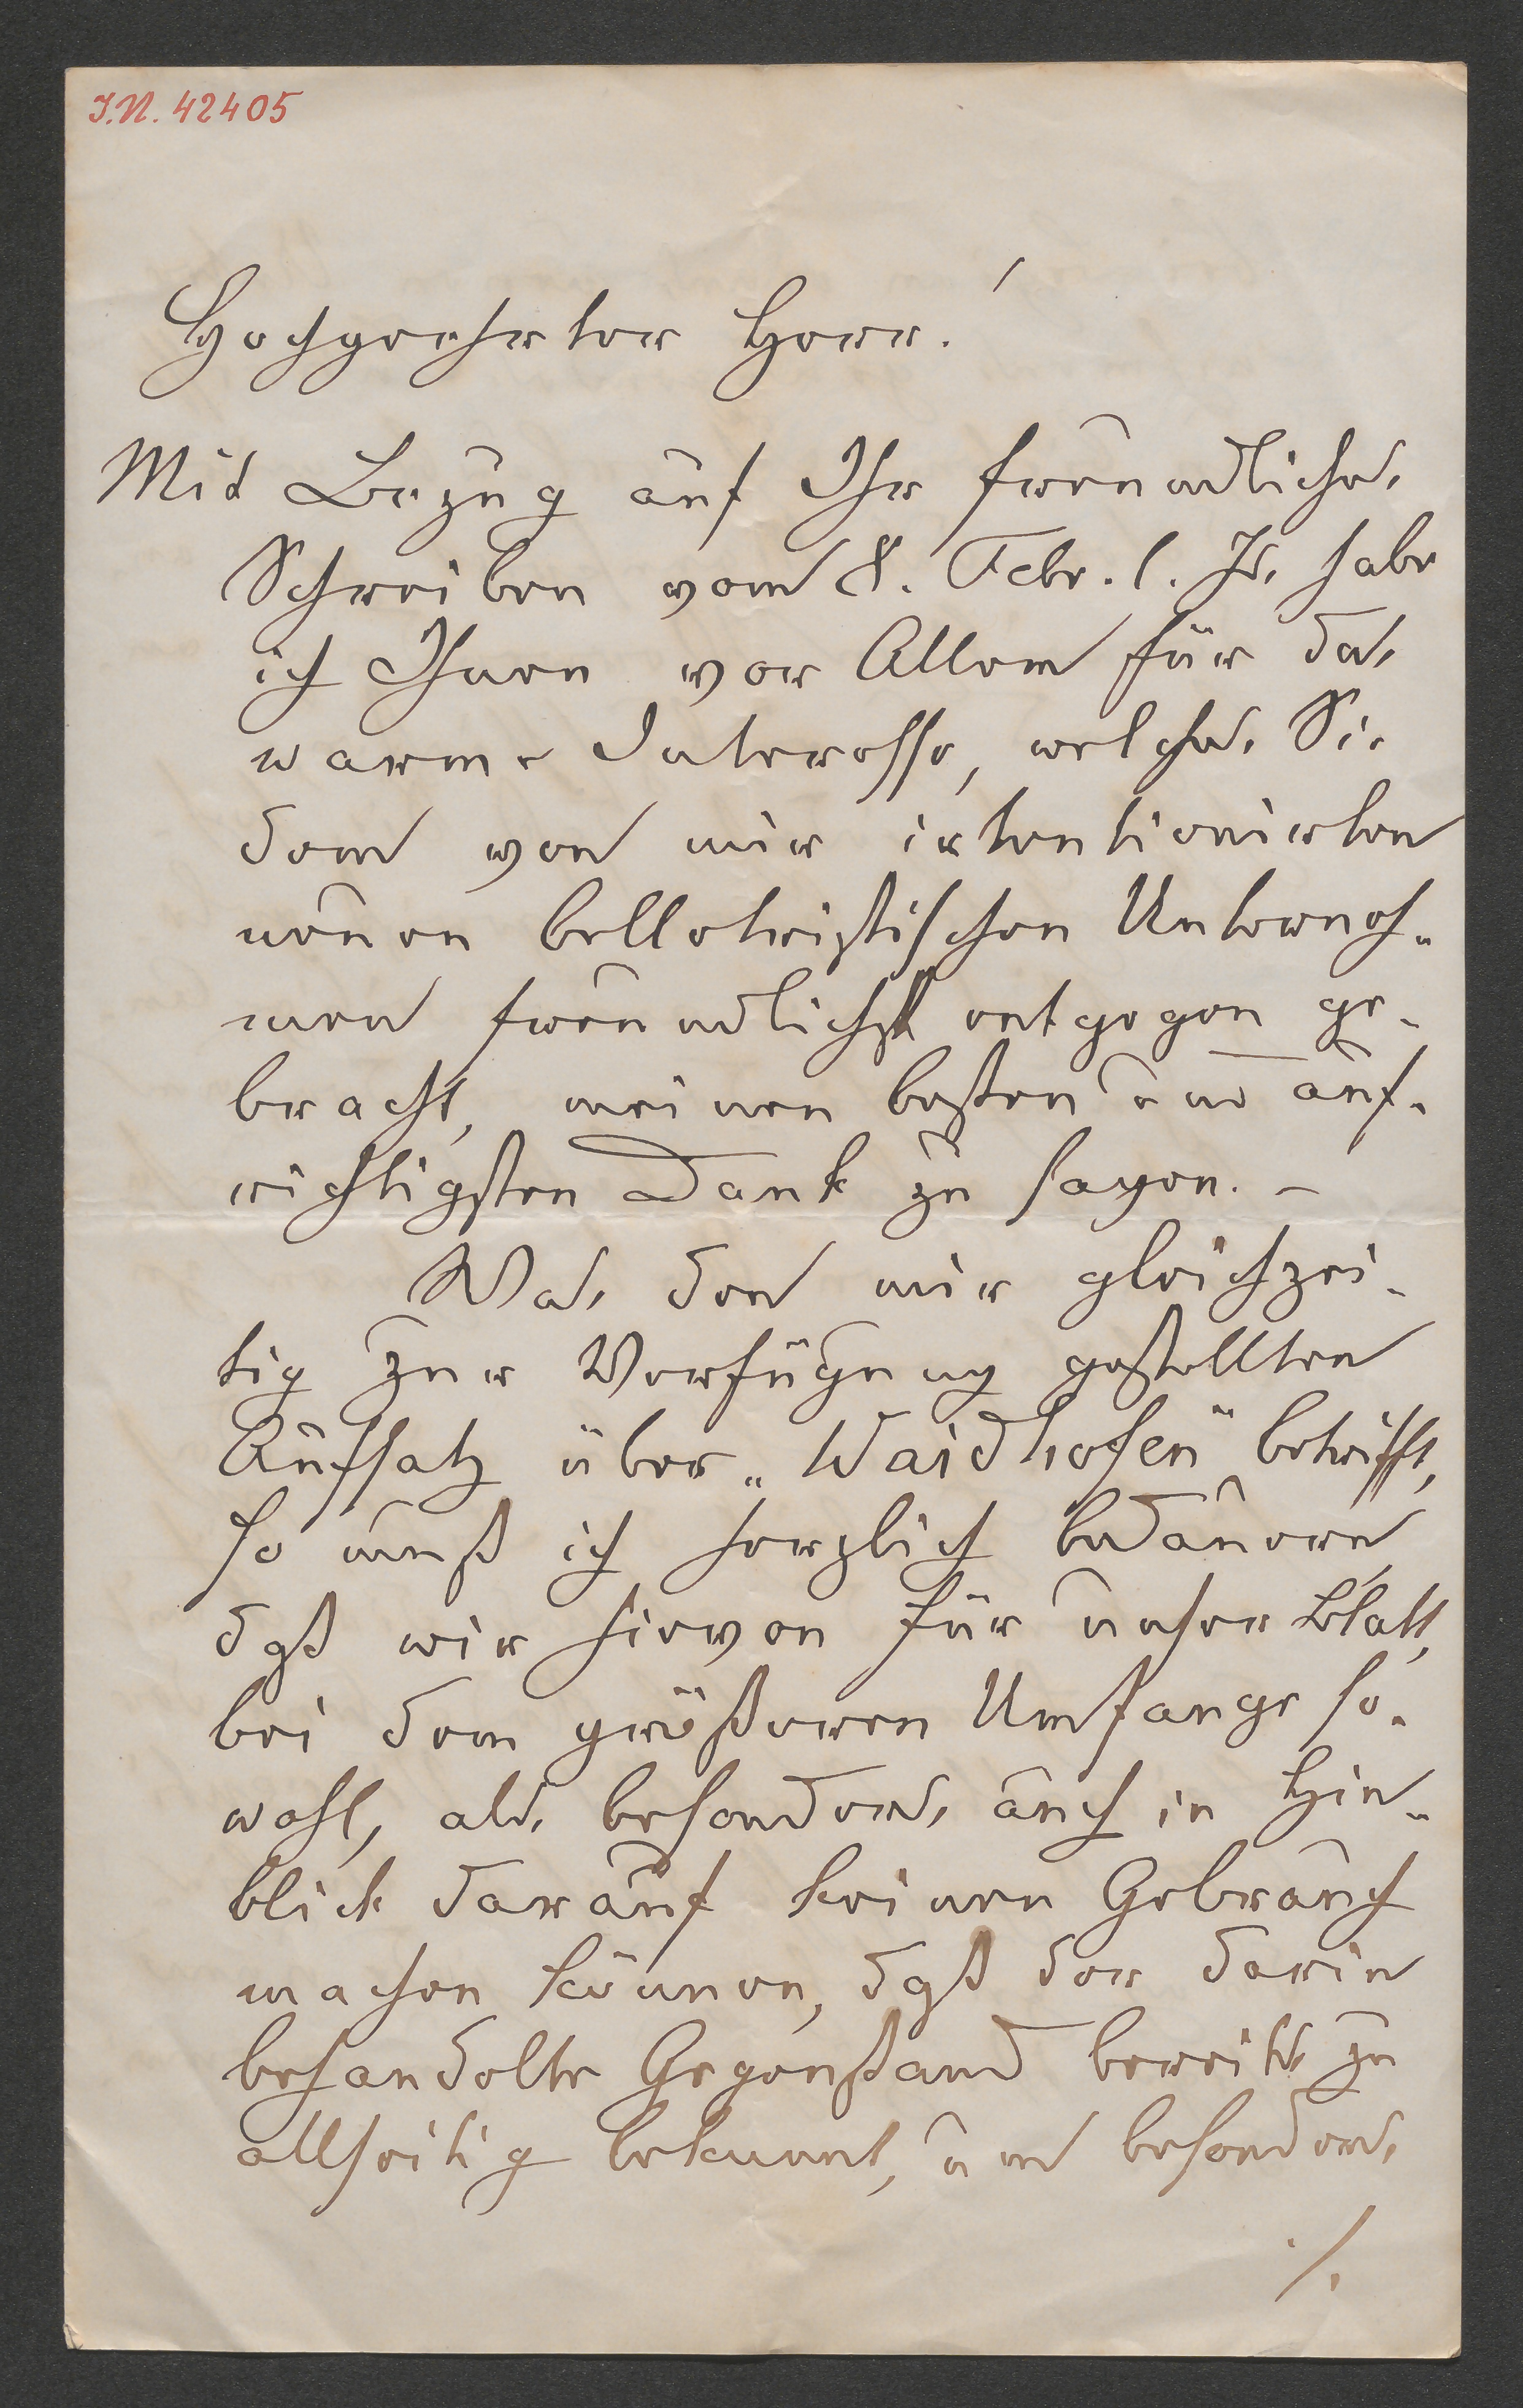 J.N. 42405
Hochgeehrter Herr!
Mit Bezug auf Ihr freundliches
Schreiben vom 8. Febr. l. Js. habe
ich Ihnen vor Allem für das
warme Interesse, welches Sie
dem von mir intentionirten
neuen belletristischen Unterneh-
men freundlichst entgegen ge-
bracht, meinen besten und auf-
richtigsten Dank zu sagen. –
Was den mir gleichzei-
tig zur Verfügung gestellten
Aufsatz über „Waidhofen" betrifft,
so muß ich herzlich bedauern,
daß wir hievon für unser Blatt,
bei dem größeren Umfange so-
wohl, als besonders auch in Hin-
blick darauf keinen Gebrauch
machen können, daß der darin
behandelte Gegenstand bereits zu
allseitig bekannt, um besonders
./.